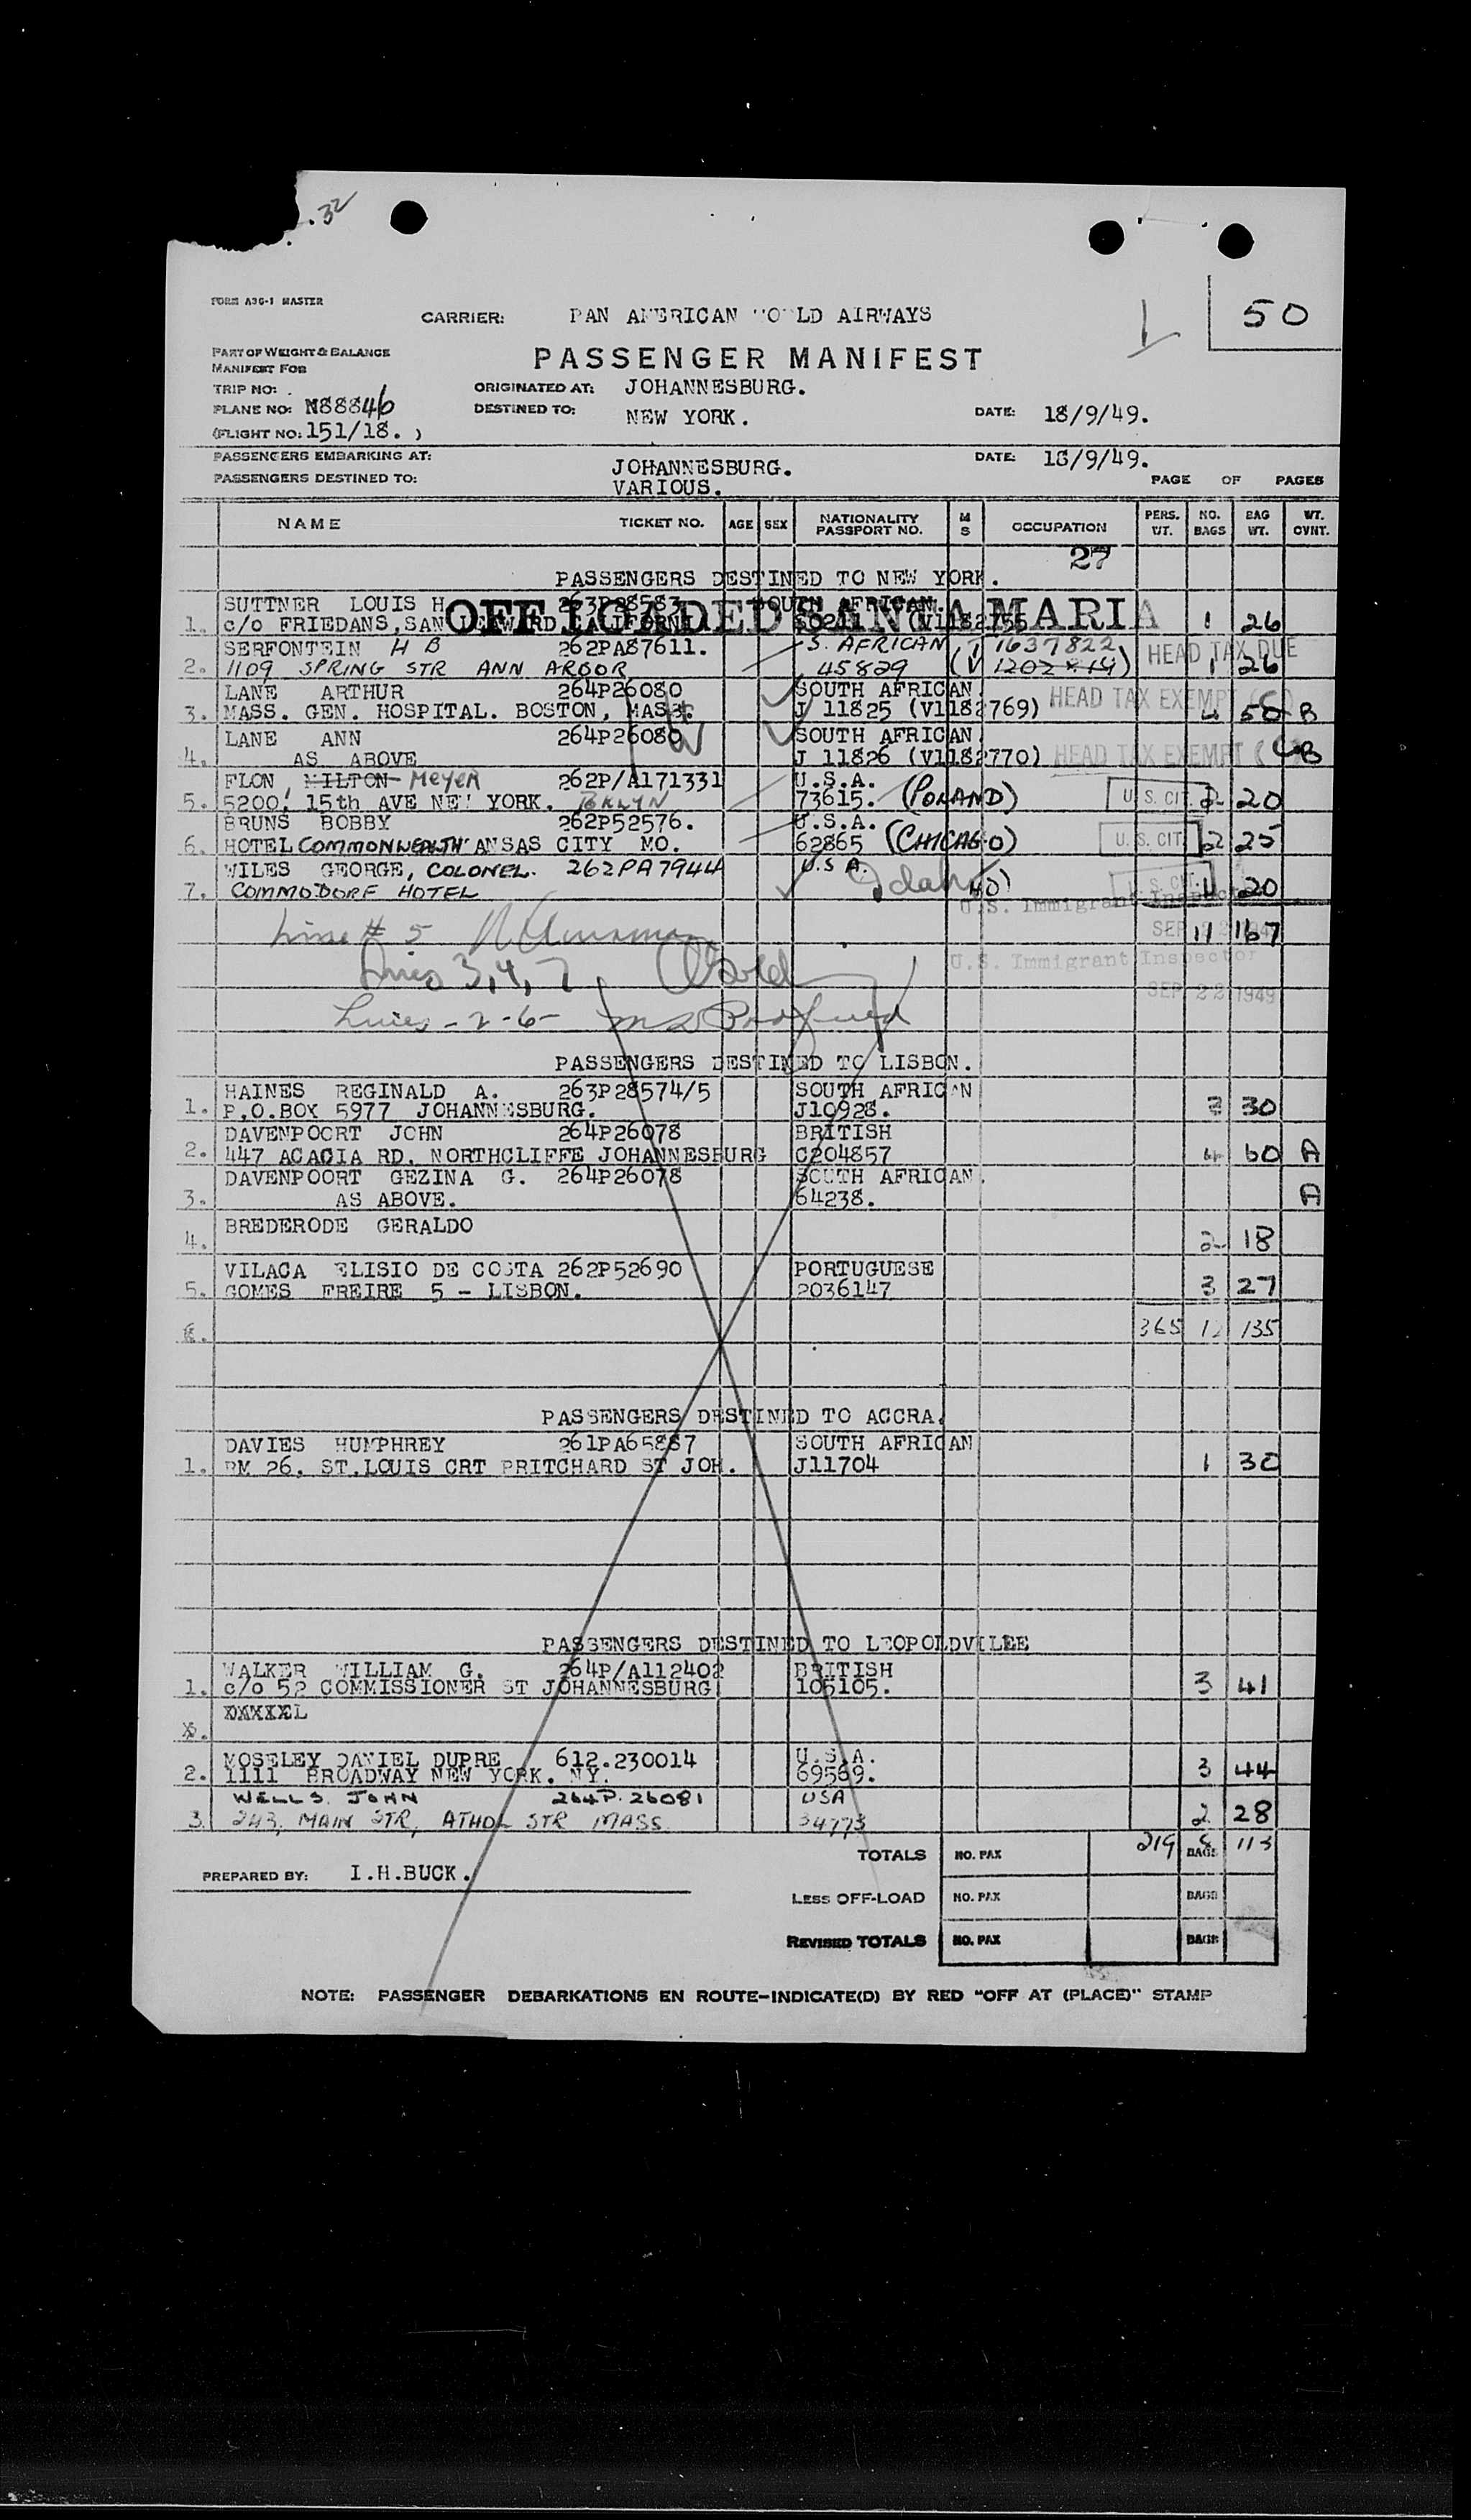 .32
FORM A3G-1 MASTER
CARRIER: PAN AMERICAN WORLD AIRWAYS
50
PART OF WEIGHT & BALANCE
MANIFEST FOR
PASSENGER MANIFEST
TRIP NO: .
ORIGINATED AT: JOHANNESBURG.
PLANE NO: N88846
DESTINED TO: NEW YORK.
DATE: 18/9/49.
(FLIGHT NO: 151/18. )
PASSENGERS EMBARKING AT: JOHANNESBURG.
DATE: 18/9/49.
PASSENGERS DESTINED TO: VARIOUS.
PAGE OF PAGES
NAME TICKET NO. AGE SEX NATIONALITY PASSPORT NO. M S OCCUPATION PERS. WT. NO. BAGS BAG WT. WT. OVNT.
27
PASSENGERS DESTINED TO NEW YORK.
SUTTNER LOUIS H 263P28583 SOUTH AFRICAN.
OFF LOADED SANTA MARIA
1. c/o FRIEDANS, SAN 1 26
SERFONTEIN H B 262PA87611. S. AFRICAN T 1637822
HEAD TAX DUE
2. 1109 SPRING STR ANN ARBOR 45829 1 26
LANE ARTHUR 264P26080 SOUTH AFRICAN.
HEAD TAX EXEMPT
3. MASS. GEN. HOSPITAL. BOSTON, MASS. J 11825 (V1182769) 4 50 B
LANE ANN 264P26080 SOUTH AFRICAN.
4. AS ABOVE J 11826 (V1182770) HEAD TAX EXEMPT B
FLON MILTON MEYER 262P/A171331 U.S.A.
5. 5200, 15th AVE NEW YORK. BKLYN 73615. (POLAND) U.S. CIT. 2 20
BRUNS BOBBY 262P52576. U.S.A.
6. HOTEL COMMONWEALTH KANSAS CITY MO. 62865 (CHICAGO) U.S. CIT. 2 25
WILES GEORGE, COLONEL. 262PA7944 U.S.A. Idaho
7. COMMODORE HOTEL U.S. CIT. 1 20
U.S. Immigrant Inspector
Line # 5
SEP 22 1949
11 167
Lines 3, 4, 7
U.S. Immigrant Inspector
SEP 22 1949
Lines - 2 - 6 -
PASSENGERS DESTINED TO LISBON.
HAINES REGINALD A. 263P28574/5 SOUTH AFRICAN
1. P.O.BOX 5977 JOHANNESBURG. J10928. 3 30
DAVENPOORT JOHN 264P26078 BRITISH
2. 447 ACACIA RD. NORTHCLIFFE JOHANNESBURG C204857 4 60 A
DAVENPOORT GEZINA G. 264P26078 SOUTH AFRICAN.
3. AS ABOVE. 64238. A
BREDERODE GERALDO
4. 2 18
VILACA ELISIO DE COSTA 262P52690 PORTUGUESE
5. GOMES FREIRE 5 - LISBON. 2036147 3 27
6. 365 12 135
PASSENGERS DESTINED TO ACCRA.
DAVIES HUMPHREY 261PA65887 SOUTH AFRICAN
1. RM 26, ST.LOUIS CRT PRITCHARD ST JOH. J11704 1 30
PASSENGERS DESTINED TO LEOPOLDVILEE
WALKER WILLIAM G. 264P/A112402 BRITISH
1. c/o 52 COMMISSIONER ST JOHANNESBURG 105105. 3 41
XXXXEL
MOSELEY DANIEL DUPRE 612.230014 U.S.A.
2. 1111 BROADWAY NEW YORK. NY. 69569. 3 44
WELLS. JOHN 264P.26081 USA
3. 243, MAIN STR, ATHOL STR MASS 34773 2 28
TOTALS NO. PAX 219 BAGS 8 113
PREPARED BY: I.H.BUCK.
LESS OFF-LOAD NO. PAX BAGS
REVISED TOTALS NO. PAX BAGS
NOTE: PASSENGER DEBARKATIONS EN ROUTE-INDICATE(D) BY RED "OFF AT (PLACE)" STAMP